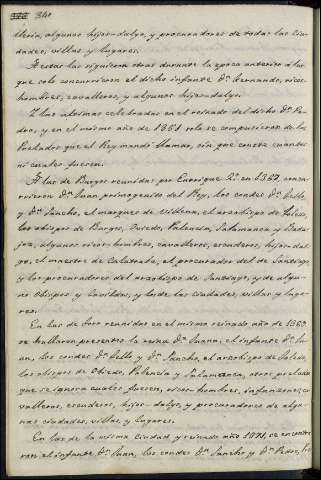 340
llería, algunos hijos-dalgo, y procuradores de todas las Ciu-
dades, villas y lugares.
A estas las siguieron otras durante la época anterior a las
que solo concurrieron el dicho infante Dn. Hernando, ricos
hombres, cavalleros, y algunos hijos-dalgo.
Y las ultimas celebradas en el reinado del dicho Dn. Pe-
dro, y en el mismo año de 1351 solo se compusieron de los
Prelados que el Rey mandó llamar, sin que conste cuantos
ni cuales fuesen.
A las de Burgos reunidas por Enrrique 2º en 1367 concu-
rrieron Dn. Juan primogenito del Rey, los condes Dn. Tello,
y Dn. Sancho, el marques de Villena, el arzobispo de Toledo,
los obispos de Burgos, Oviedo, Palencia, Salamanca y Bada-
joz, algunos ricos-hombres, cavalleros, escuderos, hijos-dal-
go, el maestre de Calatrava, el procurador del de Santiago
y los procuradores del arzobispo de Santiago, y de algu-
nos Obispos y Cavildos, y los de las ciudades, villas y luga-
res.
En las de Toro reunidas en el mismo reinado año de 1369
se hallaron presentes la reina Da. Juana, el infante Dn. Ju-
an, los condes Dn. Tello y Dn. Sancho, el arzobispo de Toledo,
los obispos de Oviedo, Palencia y Salamanca, otros prelados
que se ignora cuales fuesen, ricos-hombres, infanzones, ca-
valleros, escuderos, hijos-dalgo, y procuradores de algu-
nas ciudades, villas, y lugares.
En las de la misma Ciudad y reinado año 1371, se encontra-
ron el infante Dn. Juan, los condes Dn. Sancho y Dn. Pedro,